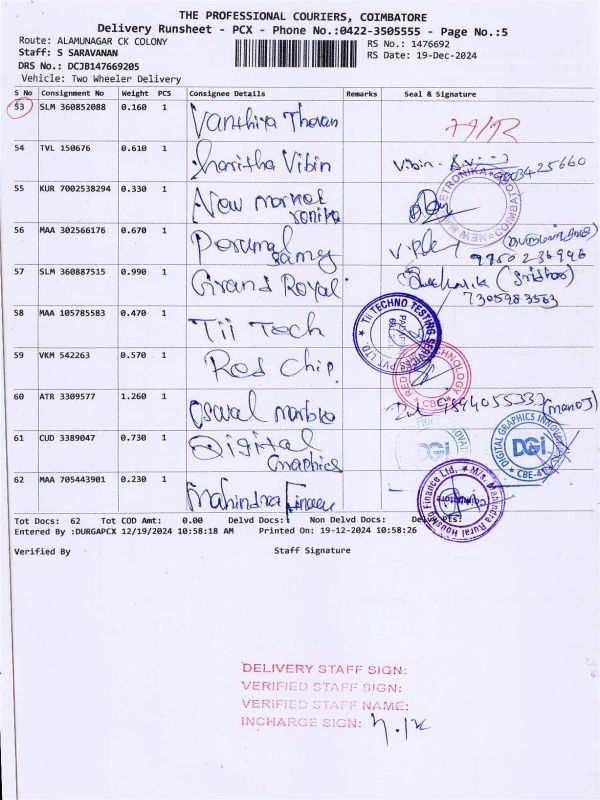 THE PROFESSIONAL COURIERS, COIMBATORE
Delivery Runsheet - PCX - Phone No.:0422-3505555 - Page No.:5
Route: ALAMUNAGAR CK COLONY
RS No.: 1476692
Staff: S SARAVANAN
RS Date: 19-Dec-2024
DRS No.: DCJB147669205
Vehicle: Two Wheeler Delivery
S No Consignment No Weight PCS Consignee Details Remarks Seal & Signature
53 SLM 360852088 0.160 1
54 TVL 150676 0.610 1 Haritha Vibin Vibin
55 KUR 7002538294 0.330 1 New market ronika
56 MAA 302566176 0.670 1 Perumal samy
57 SLM 360887515 0.990 1 Grand Royal (Sridhar)
7305983563
58 MAA 105785583 0.470 1 Tii Tech
TII TECHNO TESTING SERVICES PVT LTD
59 VKM 542263 0.570 1 Red Chip.
RED CHIP TECHNOLOGY CBE
60 ATR 3309577 1.260 1 Oswal marble (manoj)
61 CUD 3389047 0.730 1 Digital Graphics
DIGITAL GRAPHICS DGi CBE
62 MAA 705443901 0.230 1 Mahindra Finance
M/s. Mahindra Rural Housing Finance Ltd. Coimbatore
Tot Docs: 62 Tot COD Amt: 0.00 Delvd Docs: Non Delvd Docs: Delvd Pts:
Entered By :DURGAPCX 12/19/2024 10:58:18 AM Printed On: 19-12-2024 10:58:26
Verified By Staff Signature
DELIVERY STAFF SIGN:
VERIFIED STAFF SIGN:
VERIFIED STAFF NAME:
INCHARGE SIGN: